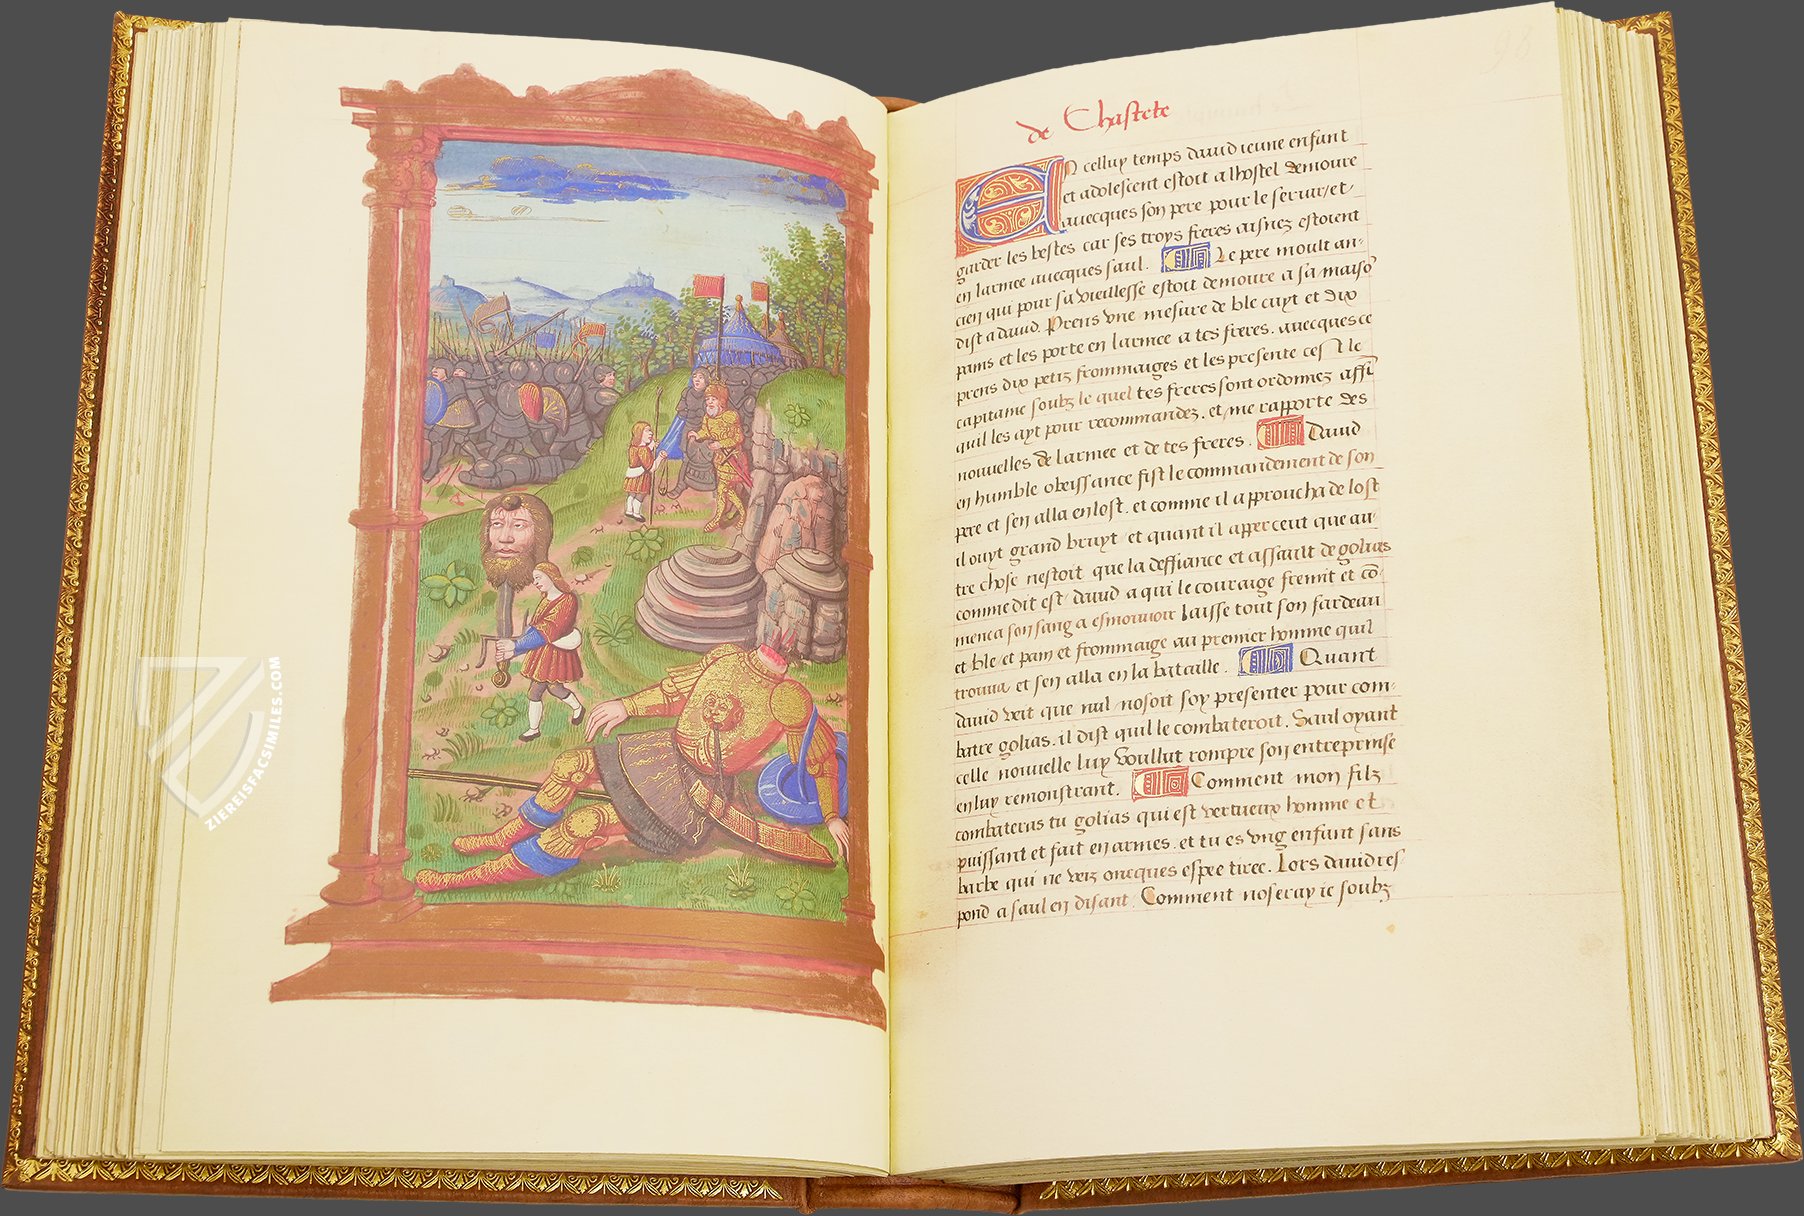 ZIEREISFACSIMILES.COM
98
de Chastete
En celluy temps dauid ieune enfant
et adolescent estoit a lhostel demoure
auecques son pere pour le seruir, et
garder les bestes car ses troys freres aisnez estoient
en larmee auecques saul. Le pere moult an-
cien qui pour sa vieillesse estoit demoure a sa maisō
dist a dauid. Prens vne mesure de ble cuyt et dix
pains et les porte en larmee a tes freres. auecques ce
prens dix petiz frommaiges et les presente
capitaine soubz le quel tes freres sont ordonnez affī
quil les ayt pour recommandez. et me rapporte des
nouuelles de larmee et de tes freres. Dauid
en humble obeissance fist le commandement de son
pere et sen alla en lost. et comme il approucha de lost
il ouyt grand bruyt et quant il apperceut que au-
tre chose nestoit que la deffiance et assault de golias
comme dit est dauid a qui le couraige fremit et cō-
menca son sang a esmouuoir laisse tout son fardeau
et ble et pain et frommaige au premier homme quil
trouua et sen alla en la bataille. Quant
dauid veit que nul nosoit soy presenter pour com-
batre golias. il dist quil le combateroit. Saul oyant
celle nouuelle luy voullut rompre son entreprinse
en luy remonstrant. Comment mon filz
combateras tu golias qui est vertueux homme et
puissant et fait en armes. et tu es vng enfant sans
barbe qui ne veiz oncques espee tiree. Lors dauid res-
pond a saul en disant. Comment noseray ie soubz